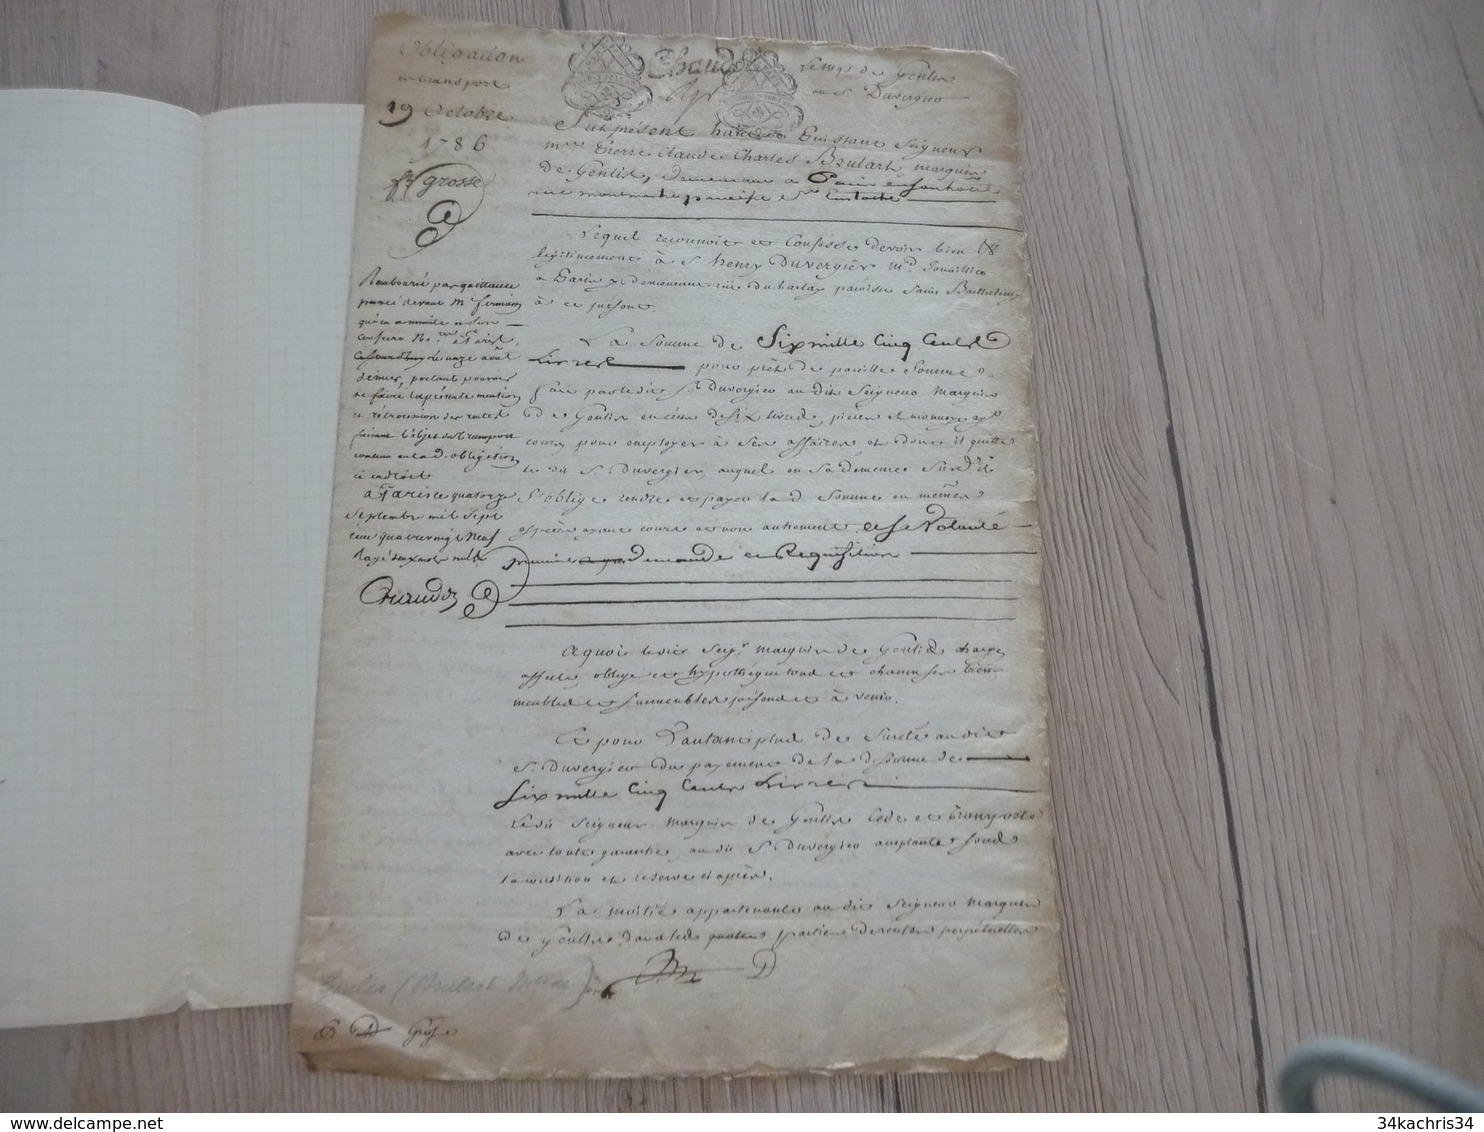 Obligation
et transport
19 Octobre
1786
fe grosse
Le mqis de Genlis
au Sr Duvergier
Fut présent haut et Puissant Seigneur
mre Pierre Claude Charles Brulart, marquis
de Genlis, demeurant à Paris en son hotel
rue montmartre paroisse St Eustache
Lequel reconnoit et Confesse devoir bien &
legitimement à S. henry Duvergier md Jouaillier
à Paris y demeurant rue du harlay paroisse Saint Barthelemy
à ce présent.
La Somme de Six mille Cinq Cents
Livres pour prêt de pareille Somme
fait par ledit S. Duvergier au dit Seigneur Marquis
De Genlis en écus de six livres, pièces et monnoye ayt
cours pour employer à ses affaires et dont il quitte
le dit S. Duvergier, auquel en sa demeure Susd. il
s'oblige rendre et payer lad. Somme en mêmes
espèces ayant cours et non autrement, à sa Volonté
premiere demande et Requisition
A quoi le dit Seigr marquis de Genlis charge
affecte, oblige et hypothèque tous et chacun ses biens
meubles et immeubles présens et à venir.
Et pour d'autant plus de sureté au dit
S. Duvergier du payement de la d. somme de
Six mille Cinq Cents Livres
Le dit Seigneur marquis de Genlis Cede et transporte
avec toute garantie, au dit S. Duvergier acceptant Sous
la condition et reserve ci après.
La moitié appartenante au dit Seigneur Marquis
De Genlis, dans les quatre parties de rentes perpétuelles
Remboursé par quittance
passé devant Me
qui en a minute et son
confrere Nres à Paris
le onze août
dernier, portant pouvoir
de faire la présente mention
et rétrocession des rentes
faisant l'objet du transport
contenu en la d. obligation
ci contre
à Paris ce quatorze
Septembre mil sept
cent quatrevingt Neuf
Rayé deux mots nuls
Genlis (Brulart
34kachris34